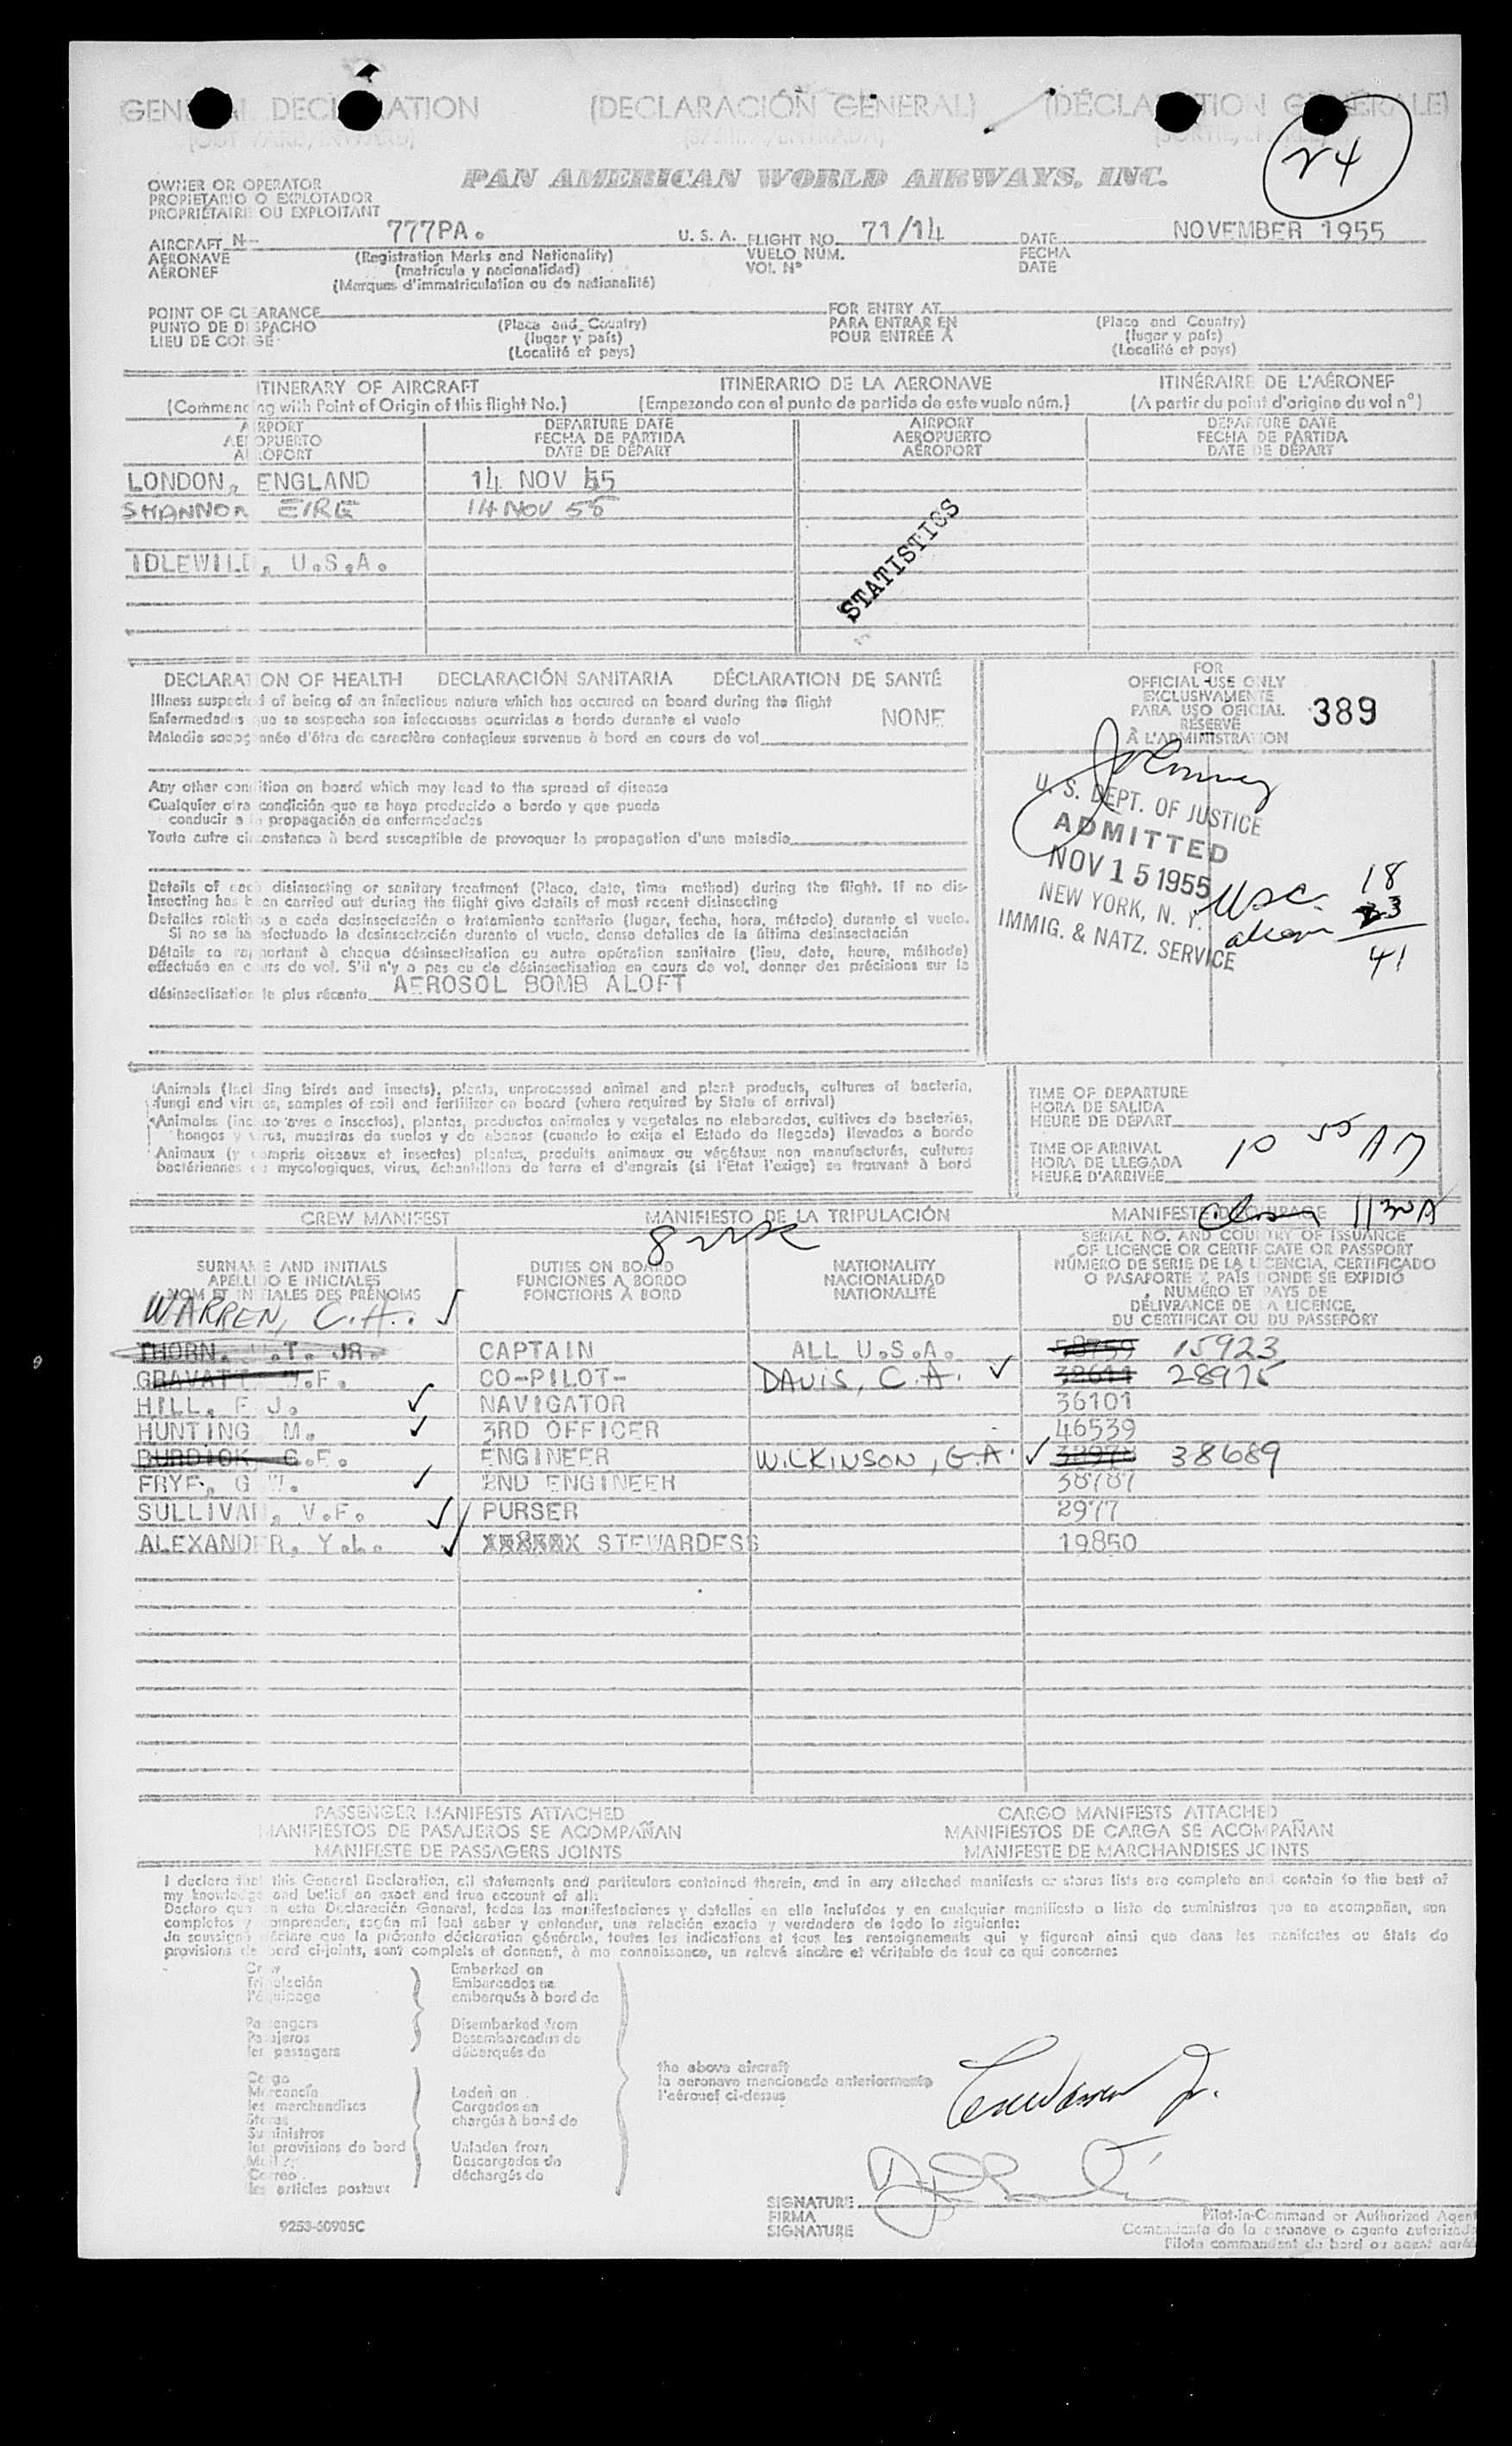 GENERAL DECLARATION (DECLARACIÓN GENERAL) (DÉCLARATION GÉNÉRALE)
24
PAN AMERICAN WORLD AIRWAYS, INC.
OWNER OR OPERATOR
PROPIETARIO O EXPLOTADOR
PROPRIÉTAIRE OU EXPLOITANT
AIRCRAFT N- 777PA. U. S. A. FLIGHT NO. 71/14 DATE NOVEMBER 1955
AERONAVE (Registration Marks and Nationality) VUELO NÚM. FECHA
AÉRONEF (matrícula y nacionalidad) VOL Nº DATE
(Marques d'immatriculation ou de nationalité)
POINT OF CLEARANCE FOR ENTRY AT
PUNTO DE DISPACHO (Place and Country) PARA ENTRAR EN (Place and Country)
LIEU DE CONGÉ (lugar y país) POUR ENTRÉE À (lugar y país)
(Localité et pays) (Localité et pays)
ITINERARY OF AIRCRAFT ITINERARIO DE LA AERONAVE ITINÉRAIRE DE L'AÉRONEF
(Commencing with Point of Origin of this flight No.) (Empezando con el punto de partida de este vuelo núm.) (A partir du point d'origine du vol nº)
AIRPORT DEPARTURE DATE AIRPORT DEPARTURE DATE
AEROPUERTO FECHA DE PARTIDA AEROPUERTO FECHA DE PARTIDA
AÉROPORT DATE DE DÉPART AÉROPORT DATE DE DÉPART
LONDON, ENGLAND 14 NOV 55
SHANNON EIRE 14 NOV 55
IDLEWILD, U.S.A.
STATISTICS
DECLARATION OF HEALTH DECLARACIÓN SANITARIA DÉCLARATION DE SANTÉ
Illness suspected of being of an infectious nature which has occured on board during the flight
Enfermedades que se sospecha son infecciosas ocurridas a bordo durante el vuelo NONE
Maladie soupçonnée d'être de caractère contagieux survenue à bord en cours de vol
Any other condition on board which may lead to the spread of disease
Cualquier otra condición que se haya producido a bordo y que pueda
conducir a la propagación de enfermedades
Toute autre circonstance à bord susceptible de provoquer la propagation d'une maladie
Details of each disinsecting or sanitary treatment (Place, date, time method) during the flight. If no dis-
insecting has been carried out during the flight give details of most recent disinsecting
Detalles relativos a cada desinsectación o tratamiento sanitario (lugar, fecha, hora, método) durante el vuelo.
Si no se ha efectuado la desinsectación durante el vuelo, dense detalles de la última desinsectación
Détails se rapportant à chaque désinsectisation ou autre opération sanitaire (lieu, date, heure, méthode)
effectuée en cours de vol. S'il n'y a pas eu de désinsectisation en cours de vol, donner des précisions sur la
désinsectisation la plus récente AEROSOL BOMB ALOFT
FOR
OFFICIAL USE ONLY
EXCLUSIVAMENTE
PARA USO OFICIAL
RÉSERVÉ
À L'ADMINISTRATION
389
U. S. DEPT. OF JUSTICE
ADMITTED
NOV 15 1955
NEW YORK, N. Y.
IMMIG. & NATZ. SERVICE
USC 18
alien 23
41
Animals (including birds and insects), plants, unprocessed animal and plant products, cultures of bacteria,
fungi and viruses, samples of soil and fertilizer on board (where required by State of arrival)
Animales (incluso aves e insectos), plantas, productos animales y vegetales no elaborados, cultivos de bacterias,
hongos y virus, muestras de suelos y de abonos (cuando lo exija el Estado de llegada) llevados a bordo
Animaux (y compris oiseaux et insectes) plantes, produits animaux ou végétaux non manufacturés, cultures
bactériennes ou mycologiques, virus, échantillons de terre et d'engrais (si l'Etat l'exige) se trouvant à bord
TIME OF DEPARTURE
HORA DE SALIDA
HEURE DE DÉPART
TIME OF ARRIVAL
HORA DE LLEGADA
HEURE D'ARRIVÉE
10 55 AM
1130A
CREW MANIFEST MANIFIESTO DE LA TRIPULACIÓN MANIFESTE D'EQUIPAGE
8 USC
SURNAME AND INITIALS
APELLIDO E INICIALES
NOM ET INITIALES DES PRÉNOMS
DUTIES ON BOARD
FUNCIONES A BORDO
FONCTIONS À BORD
NATIONALITY
NACIONALIDAD
NATIONALITÉ
SERIAL NO. AND COUNTRY OF ISSUANCE
OF LICENCE OR CERTIFICATE OR PASSPORT
NÚMERO DE SERIE DE LA LICENCIA, CERTIFICADO
O PASAPORTE Y PAÍS DONDE SE EXPIDIÓ
NUMÉRO ET PAYS DE
DÉLIVRANCE DE LA LICENCE,
DU CERTIFICAT OU DU PASSEPORT
WARREN, C.A.
THORN, .T. JR. CAPTAIN ALL U.S.A. 58759 15923
GRAVATT .F. CO-PILOT- DAVIS, C.A. 32611 28975
HILL, F J. NAVIGATOR 36101
HUNTING M. 3RD OFFICER 46539
BURDICK, G.F. ENGINEER WILKINSON, G.A. 38689
FRYE, G W. 2ND ENGINEER 38787
SULLIVAN, V.F. PURSER 2977
ALEXANDER, Y.L. STEWARDESS 19850
PASSENGER MANIFESTS ATTACHED CARGO MANIFESTS ATTACHED
MANIFIESTOS DE PASAJEROS SE ACOMPAÑAN MANIFIESTOS DE CARGA SE ACOMPAÑAN
MANIFESTE DE PASSAGERS JOINTS MANIFESTE DE MARCHANDISES JOINTS
I declare that this General Declaration, all statements and particulars contained therein, and in any attached manifests or stores lists are complete and contain to the best of
my knowledge and belief an exact and true account of all:
Declaro que en esta Declaración General, todas las manifestaciones y detalles en ella incluídos y en cualquier manifiesto o lista de suministros que se acompañan, son
completos y comprenden, según mi leal saber y entender, una relación exacta y verdadera de todo lo siguiente:
Je soussigné déclare que la présente déclaration générale, toutes les indications et tous les renseignements qui y figurent ainsi que dans les manifestes ou états de
provisions de bord ci-joints, sont complets et donnent, à ma connaissance, un relevé sincère et véritable de tout ce qui concerne:
Crew
Tripulación
l'équipage
Passengers
Pasajeros
les passagers
Cargo
Mercancía
les marchandises
Stores
Suministros
les provisions de bord
Mail
Correo
les articles postaux
Embarked on
Embarcados en
embarqués à bord de
Disembarked from
Desembarcados de
débarqués de
Laden on
Cargados en
chargés à bord de
Unladen from
Descargados de
déchargés de
the above aircraft
la aeronave mencionada anteriormente
l'aéronef ci-dessus
SIGNATURE
FIRMA
SIGNATURE
Pilot-in-Command or Authorized Agent
Comandante de la aeronave o agente autorizado
Pilote commandant de bord ou agent agréé
9253-60905C